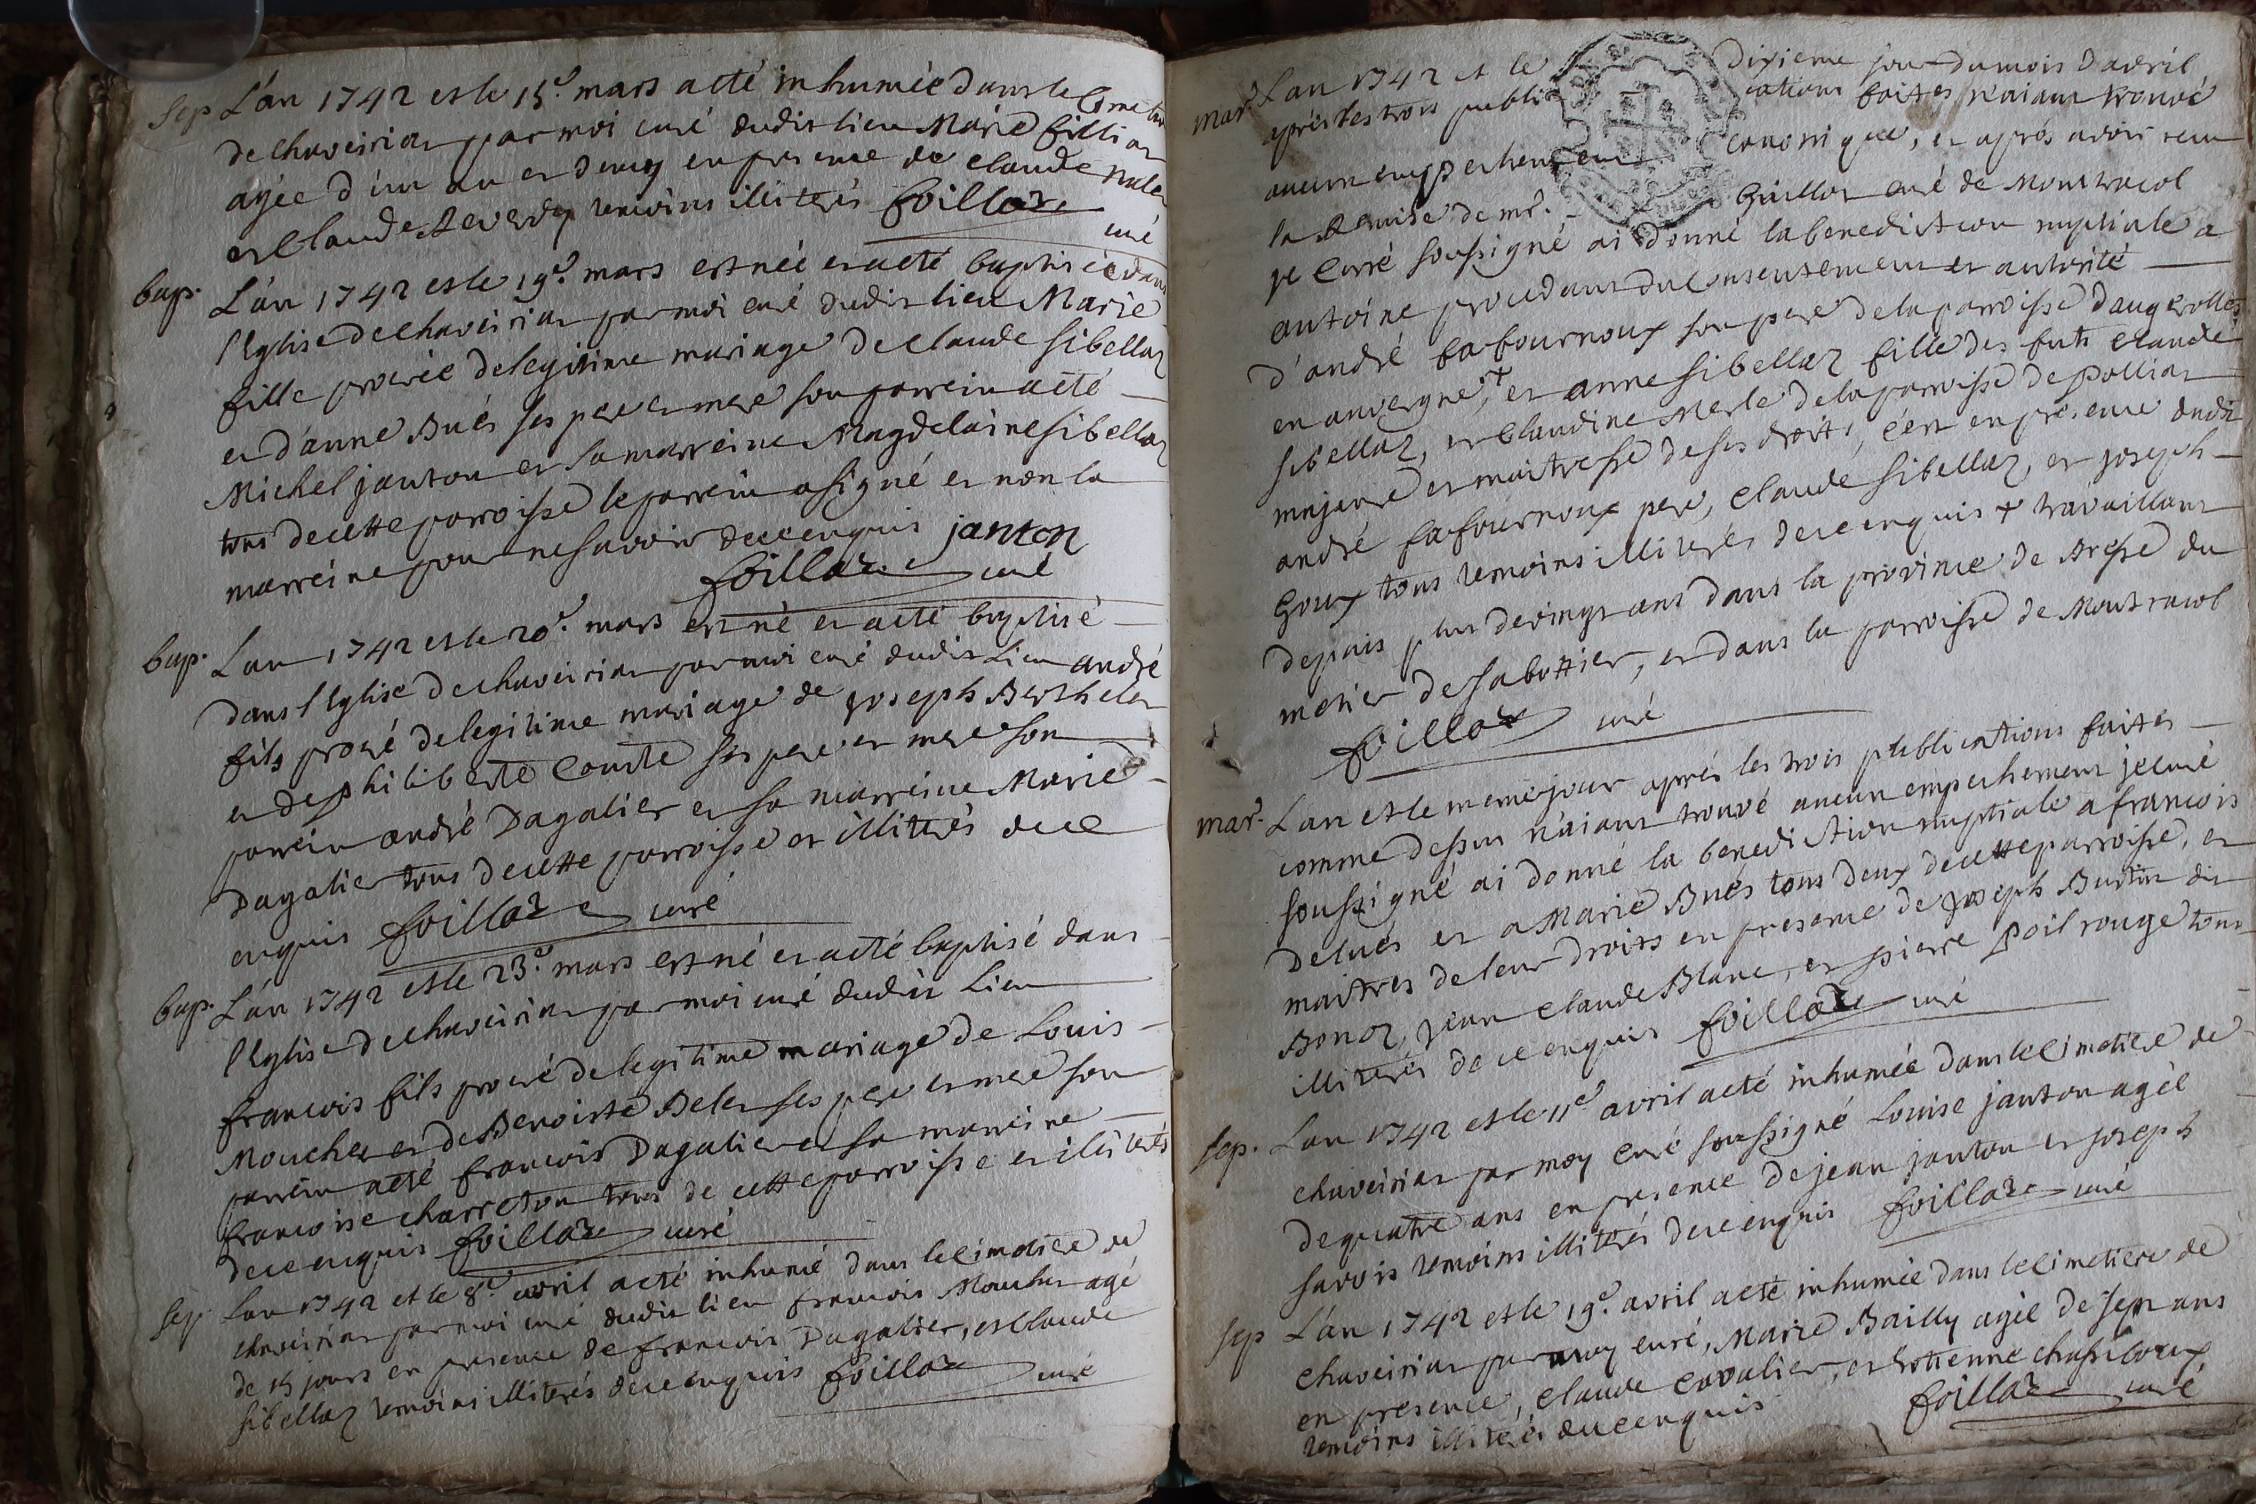 sep L'án 1742 et le 15e. mars a eté inhumée dans le Cimetiere
de chaveiriat par moi curé dudit lieu Marie fillion
agée d'un an et demy en presence de claude
et Claude Reverdy temoins illiterés foillaz curé
bap. L'án 1742 et le 19e. mars est née et a eté baptisée dans
l'Eglise de chaveiriat par moi curé dudit lieu Marie
fille procrée de legitime mariage de claude sibellaz
et d'anne Bués ses pere et mere son parrein a eté
Michel janton et sa marreine Magdelaine sibellaz
tous de cette parroisse le parrein a signé et non la
marreine pour ne savoir de ce enquis janton
foillaz curé
bap. L'an 1742 et le 20e. mars est né et a eté baptisé
dans l'Eglise de chaveiriat par moi curé dudit lieu andré
fils procré de legitime mariage de joseph Berthelet
et de philiberte Comte ses pere et mere son
parrein andré Dagalier et sa marreine Marie
Dagalier tous de cette parroisse et illiterés de ce
enquis foillaz curé
bap. L'án 1742 et le 23e. mars est né et a eté baptisé dans
l'Eglise de chaveiriat par moi curé dudit lieu
francois fils procré de legitime mariage de Louis
Mouchet et de Benoiste Belet ses pere et mere son
parrein a eté francois Dagalier et sa marreine
francoise charreton tous de cette parroisse et illiterés
de ce enquis foillaz curé
sep. L'an 1742 et le 8e. avril a eté inhumé dans le cimetiere de
chaveiriat par moi curé dudit lieu francois Mouchet agé
de 15 jours en presence de francois Dagalier, et Claude
sibellaz temoins illiterés de ce enquis foillaz curé
mar. L'an 1742 et le dixieme jour du mois d'avril
aprés les trois publications faites n'aiant trouvé
aucun empechement canonique, et aprés avoir recu
la Remise de mr. Guillot curé de Montracol
je Curé soussigné ai donné la benediction nuptiale a
antoine procedant du consentement et autorité
d'andré fafournoux son pere de la parroisse d'augerolles
en auvergne, + et anne sibellaz fille des futs claude
sibellaz, et Claudine Merle de la parroisse de polliat
majeure et maitresse de ses droits, c'est en presence dudit
andré fafournoux pere, claude sibellaz, et joseph
Goux tous temoins illiterés de ce enquis + travaillant
depuis plus de vingt ans dans la province de Bresse du
metier de sabottier, et dans la parroisse de Montracol
foillaz curé
mar. L'an et le meme jour aprés les trois publications faites
comme dessus n'aiant trouvé aucun empechement je curé
soussigné ai donné la benediction nuptiale a francois
Delués et a Marie Bués tous deux de cette parroisse, et
maitres de leur droits en presence de joseph Burtin dit
Bonoz, jean claude Blanc, et pierre Poil rouge tous
illiterés de ce enquis foillaz curé
sep. L'an 1742 et le 11e. avril a eté inhumée dans le cimetiere de
chaveiriat par moy curé soussigné Louise janton agée
de quatre ans en presence de jean janton et joseph
savois temoins illiterés de ce enquis foillaz curé
sep L'án 1742 et le 19e. avril a eté inhumée dans le cimetiere de
chaveiriat par moy curé, Marie Bailly agée de sept ans
en presence, claude cavalier, et Estienne chassiboux
temoins illiterés de ce enquis foillaz curé